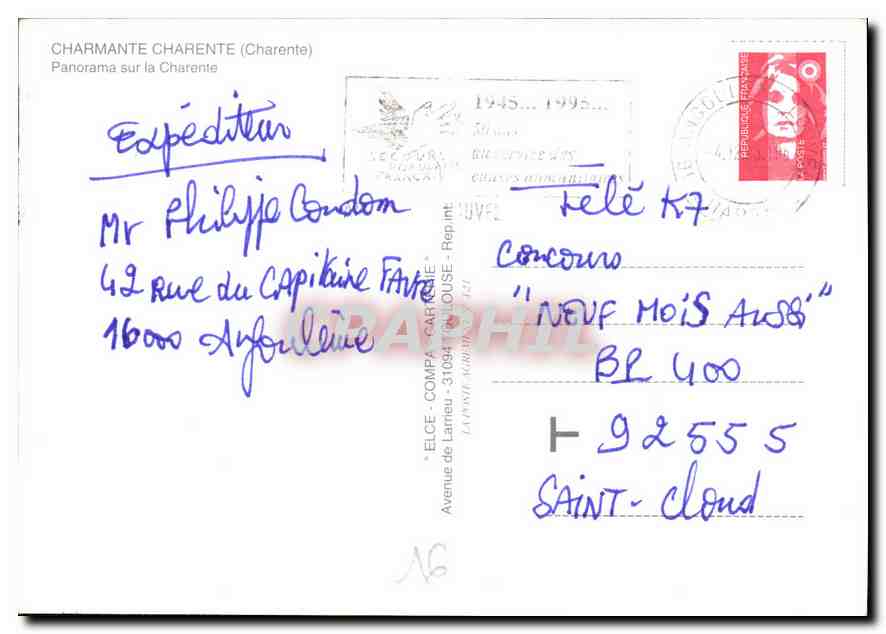 CHARMANTE CHARENTE (Charente)
Panorama sur la Charente
Expéditeur
Mr Philippe Condom
42 Rue du CAPitaine FAVRE
16000 Angoulême
16
1945... 1995...
50 ans
au service des
causes humanitaires
SECOURS
POPULAIRE
FRANÇAIS
REPUBLIQUE FRANÇAISE
LA POSTE
" ELCE - COMPA - CARTERIE "
Avenue de Larrieu - 31094 TOULOUSE - Rep.int.
Télé K7
Concours
"NEUF MOIS AUSSI"
BP 400
92555
SAINT-Cloud
CPAPHIL